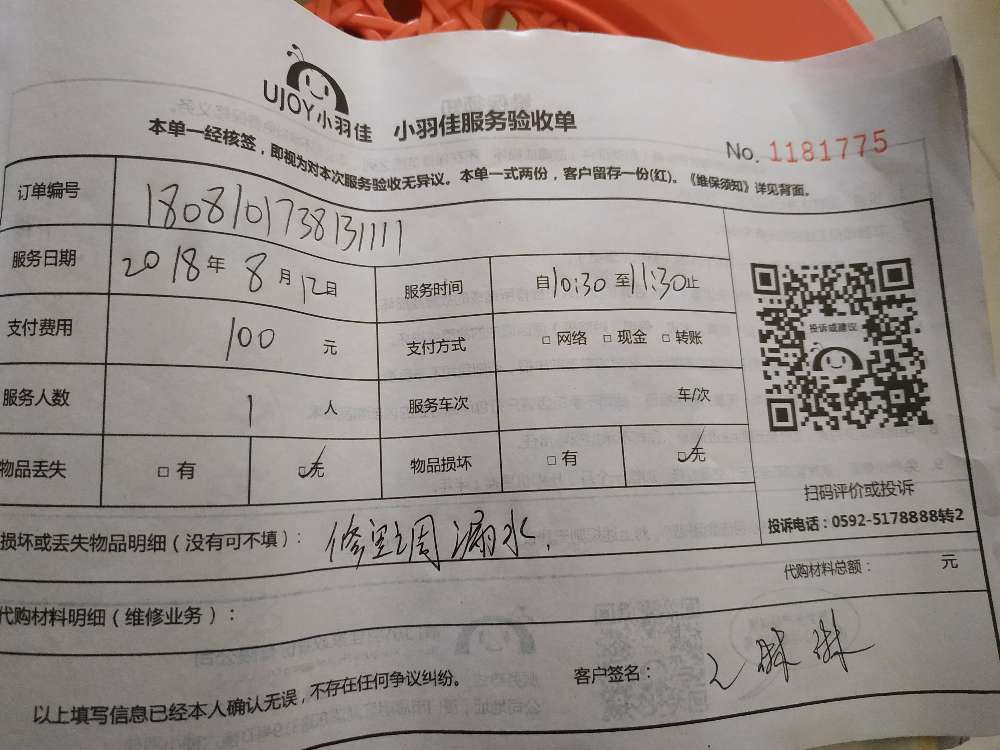 UJOY小羽佳
小羽佳服务验收单
No. 1181775
本单一经核签，即视为对本次服务验收无异议。本单一式两份，客户留存一份(红)。《维保须知》详见背面。
订单编号 180810173813 1111
服务日期 2018年8月12日 服务时间 自10:30至11:30止
支付费用 100 元 支付方式 □网络 □现金 □转账
服务人数 1 人 服务车次 车/次
物品丢失 □有 □无 物品损坏 □有 □无
投诉或建议
扫码评价或投诉
投诉电话：0592-5178888转2
损坏或丢失物品明细（没有可不填）： 修 漏水.
代购材料总额： 元
代购材料明细（维修业务）：
客户签名：
以上填写信息已经本人确认无误，不存在任何争议纠纷。